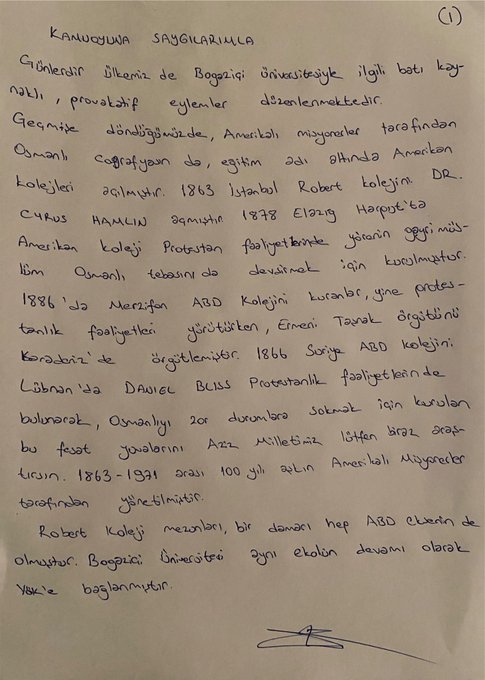 (1)
KAMUOYUNA SAYGILARIMLA
Günlerdir ülkemiz de Bogaziçi üniversitesiyle ilgili batı kay-
naklı, provakatif eylemler düzenlenmektedir.
Geçmişe döndüğümüzde, Amerikalı misyonerler tarafından
Osmanlı coğrafyasın da, eğitim adı altında Amerikan
kolejleri açılmıştır. 1863 İstanbul Robert kolejini DR.
CYRUS HAMLIN açmıştır. 1878 Elazığ Harput'ta
Amerikan koleji Protestan faaliyetlerinde yörenin gayrimüs-
lüm Osmanlı tebasını da devşirmek için kurulmuştur.
1886'da Merzifon ABD Kolejini kuranlar, yine protes-
tanlık faaliyetleri yürütürken, Ermeni Taşnak örgütünü
Karadeniz'de örgütlemiştir. 1866 Suriye ABD kolejini
Lübnan'da DANIEL BLISS Protestanlık faaliyetlerin de
bulunarak, Osmanlıyı zor durumlara sokmak için kurulan
bu fesat yuvalarını Aziz Milletimiz lütfen biraz araş-
tırsın. 1863-1971 arası 100 yılı aşkın Amerikalı Misyonerler
tarafından yönetilmiştir.
Robert Koleji mezonları, bir damarı hep ABD elçerin de
olmuştur. Bogaziçi Üniversitesi aynı ekolün devamı olarak
YÖK'e bağlanmıştır.